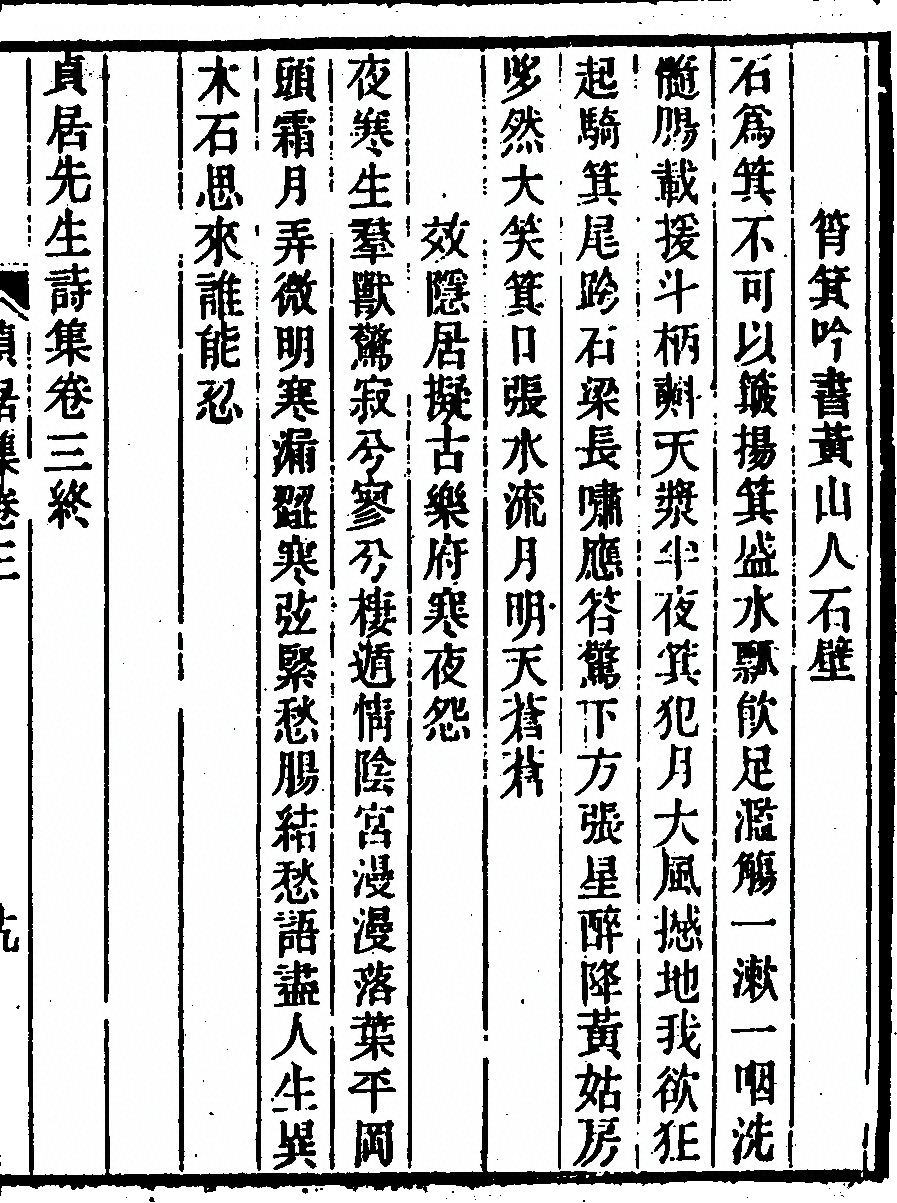 筲箕吟書黃山人石壁
石爲箕不可以簸揚箕盛水飄飲足濫觴一漱一咽洗
髓腸載援斗柄𣂏天漿半夜箕犯月大風撼地我欲狂
起騎箕尾跨石梁長嘯應答驚下方張星醉降黃姑房
哆然大笑箕口張水流月明天蒼蒼
效隱居擬古樂府寒夜怨
夜寒生羣獸驚寂兮寥兮棲遁情陰宮漫漫落葉平岡
頭霜月弄微明寒漏澀寒弦緊愁腸結愁語盡人生異
木石思來誰能忍
貞居先生詩集卷三終
貞居集卷三